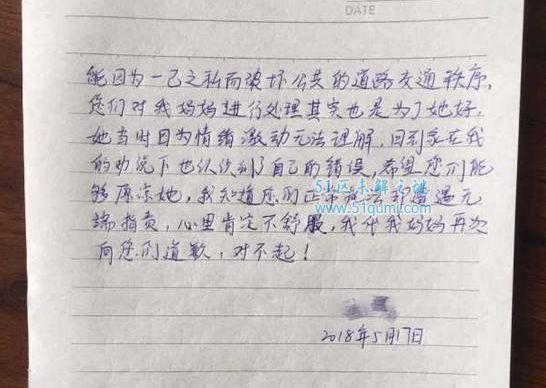 DATE
能因为一己之私而破坏公共的道路交通秩序,
您们对我妈妈进行处理其实也是为了她好.
她当时因为情绪激动无法理解,回到家在我
的劝说下也认识到了自己的错误,希望您们能
够原谅她,我知道您们正常执法却遭遇无
端指责,心里肯定不舒服,我代我妈妈再次
向您们道歉,对不起!
51区未解之谜
www.51qumi.com
2018年5月17日